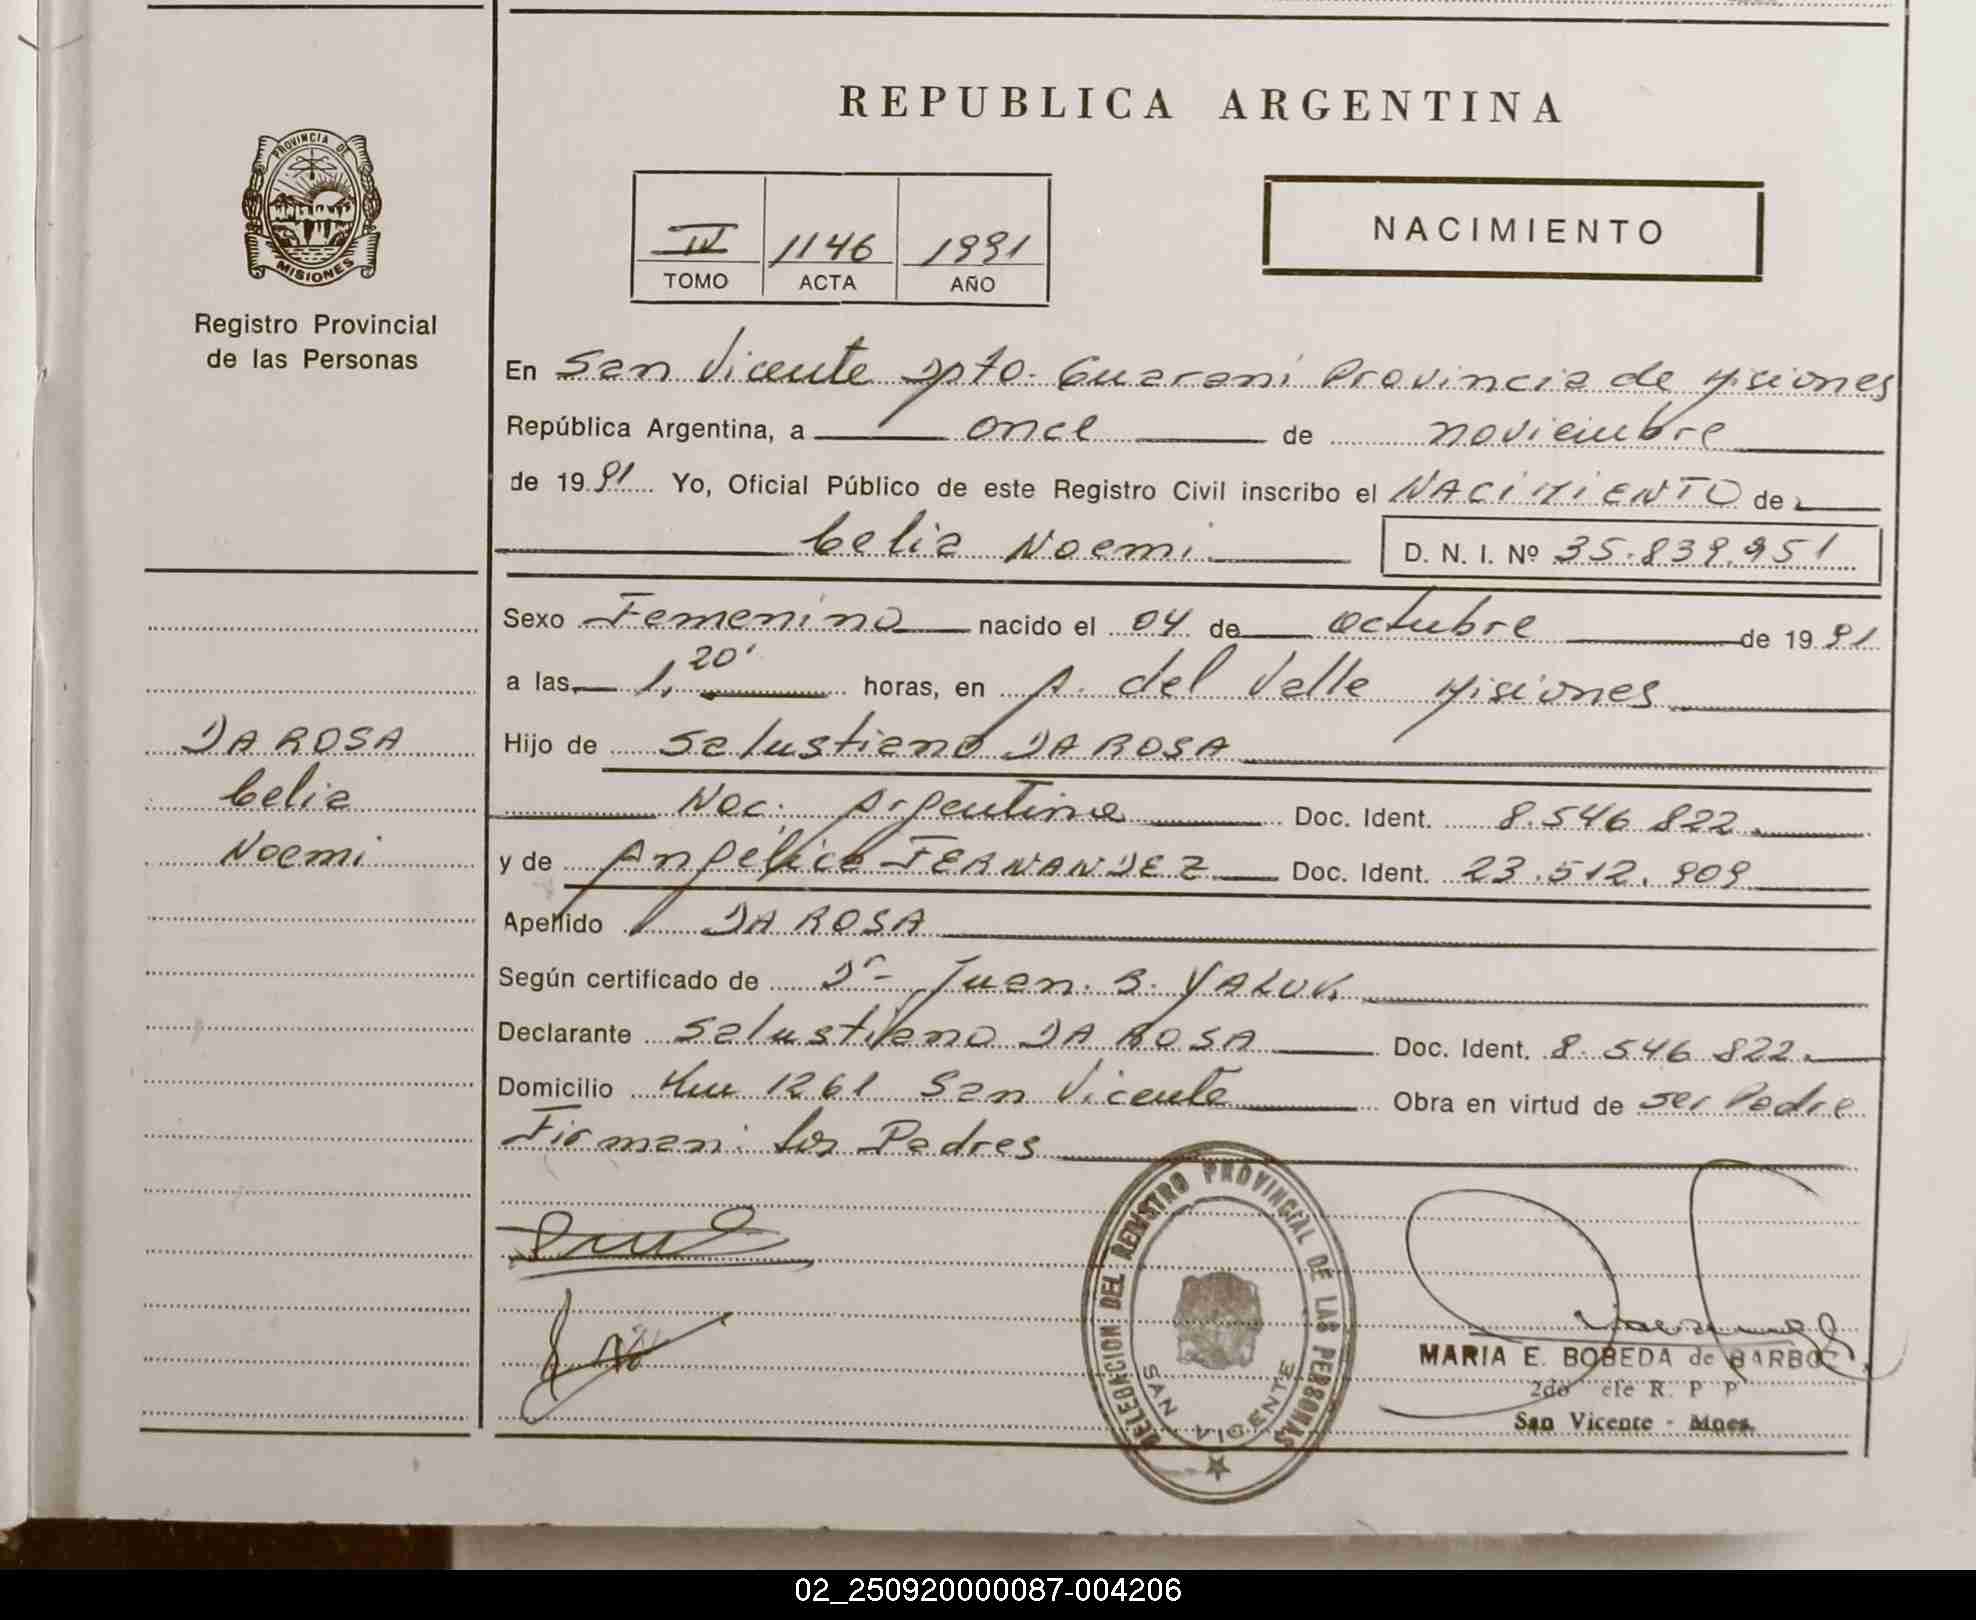 REPUBLICA ARGENTINA
PROVINCIA DE
MISIONES
Registro Provincial
de las Personas
IV 1146 1991
TOMO ACTA AÑO
NACIMIENTO
En San Vicente Dpto. Guarani Provincia de Misiones
República Argentina, a once de noviembre
de 1991 Yo, Oficial Público de este Registro Civil inscribo el NACIMIENTO de
Celia Noemi D. N. I. Nº 35.839.951
Sexo Femenino nacido el 04 de octubre de 1991
a las 1,20' horas, en A. del Valle Misiones
DA ROSA
Celia
Noemi
Hijo de Salustiano DA ROSA
Nac. Argentina Doc. Ident. 8.546.822
y de Angélica FERNANDEZ Doc. Ident. 23.512.909
Apellido DA ROSA
Según certificado de Dr. Juan B.
Declarante Salustiano DA ROSA Doc. Ident. 8.546.822
Domicilio Km 1261 San Vicente Obra en virtud de ser Padre
Firman: los Padres
DELEGACION DEL REGISTRO PROVINCIAL DE LAS PERSONAS
SAN VICENTE
MARIA E. BOBEDA de
2do R. P. P
San Vicente - Mnes.
02_250920000087-004206